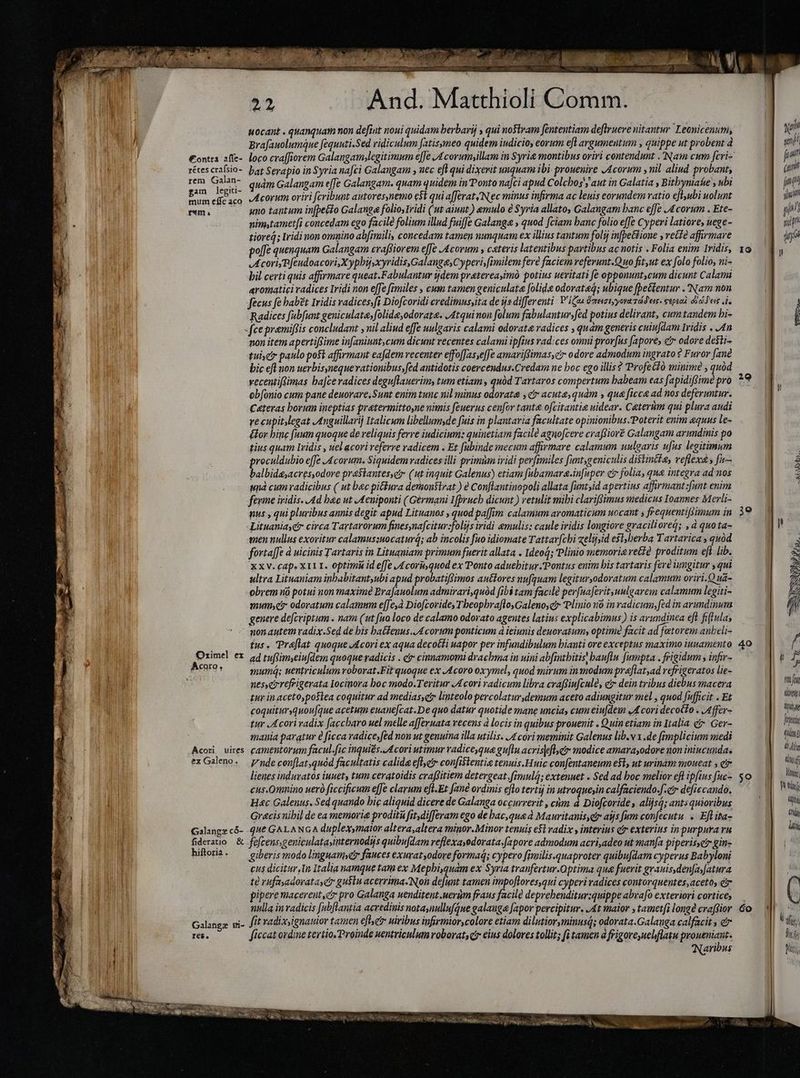 22 And. Matthioli Comm.
uocant . quanquam non desint noui quidam herbarij , qui nostram sententiam destruere nitantur Leonicenum,
Brasauolumque sequuti. Sed ridiculum satis, meo quidem iudicio, eorum est argumentum , quippe ut probent à
Contra asse-
rétes crassio-
rem Galan-
gam legiti-
mum esse aco
rum.
loco crassiorem Galangam, legitimum esse Acorum, illam in Syriæ montibus oriri contendunt . Nam cum scri-
bat Serapio in Syria nasci Galangam , nec est qui dixerit unquam ibi prouenire Acorum , nil aliud probant,
quàm Galangam esse Galangam. quam quidem in Ponto nasci apud Colchos, aut in Galatia , Bithyniaue , ubi
Acorum oriri scribunt autores, nemo est qui afferat, Nec minus infirma ac leuis eorundem ratio est, ubi uolunt
uno tantum inspecto Galangæ folio, Iridi ( ut aiunt ) æmulo è Syria allato, Galangam hanc esse Acorum . Ete-
nim, tametsi concedam ego facilè folium illud fuisse Galangæ , quod sciam hanc folio esse Cyperi latiore, uege-
tioreq́; Iridi non omnino absimili, concedam tamen nunquam ex illius tantum folij inspectione , rectè affirmare
posse quenquam Galangam crassiorem esse Acorum , cæteris latentibus partibus ac notis . Folia enim Iridis,
Acori, Pseudoacori, Xyphij, xyridis, Galangæ, Cyperi, similem ferè faciem referunt. Quo fit, ut ex solo folio, ni-
hil certi quis affirmare queat. Fabulantur ijdem præterea, imò potius ueritati se opponunt, cum dicunt Calami
aromatici radices Iridi non esse similes , cum tamen geniculatæ solidæ odoratæq́; ubique spectentur . Nam non
secus se habēt Iridis radices, si Dioscoridi credimus, ita de ijs differenti
Radices subsunt geniculatæ, solidæ, odoratæ. Atqui non solum fabulantur, sed potius delirant, cum tandem hi-
sce præmissis concludant , nil aliud esse uulgaris calami odoratæ radices , quàm generis cuiusdam Iridis . An
non item apertissime insaniunt, cum dicunt recentes calami ipsius radices omni prorsus sapore, & odore desti-
tui, & paulo post affirmant easdem recenter effossas, esse amarissimas, & odore admodum ingrato? Furor sanè
hic est non uerbis, neque rationibus, sed antidotis coercendus. Credam ne hoc ego illis? Profectò minimè , quòd
recentissimas hasce radices degustauerim, tum etiam , quòd Tartaros compertum habeam eas sapidissimè pro
obsonio cum pane deuorare. Sunt enim tunc nil minus odoratæ , & acutæ, quàm , quæ siccæ ad nos deferuntur.
Cæteras horum ineptias prætermitto, ne nimis seuerus censor tantæ oscitantiæ uidear. Cæterùm qui plura audi
re cupit, legat Anguillarij Italicum libellum, de suis in plantaria facultate opinionibus. Poterit enim æquus le-
ctor hinc suum quoque de reliquis ferre iudicium: quinetiam facilè agnoscere crassiorē Galangam arundinis po
tius quam Iridis , uel acori referre radicem . Et subinde mecum affirmare calamum uulgaris usus legitimum
proculdubio esse Acorum. Siquidem radices illi primùm iridi persimiles sunt, geniculis distinctæ, reflexæ, su-
balbidæ, acres, odore præstantes, & (ut inquit Galenus) etiam subamaræ. insuper & folia, quæ integra ad nos
unà cum radicibus ( ut hæc pictura demonstrat ) è Constantinopoli allata sunt, id apertius affirmant: sunt enim
ferme iridis. Ad hæc ut Aeniponti (Germani Ispruch dicunt ) retulit mihi clarissimus medicus Ioannes Merli-
nus , qui pluribus annis degit apud Lituanos , quod passim calamum aromaticum uocant , frequentissimum in
Lituania, & circa Tartarorum fines, nascitur: folijs iridi æmulis: caule iridis longiore gracilioreq́; , à quo ta-
men nullus exoritur calamus: uocaturq́; ab incolis suo idiomate Tattarschi zelij, id est, herba Tartarica , quòd
fortasse à uicinis Tartaris in Lituaniam primum fuerit allata . Ideoq́; Plinio memoriæ rectè proditum est lib.
xxv. cap. XIII. optimū id esse Acorū, quod ex Ponto aduehitur. Pontus enim his tartaris ferè iungitur , qui
ultra Lituaniam inhabitant, ubi apud probatissimos auctores nusquam legitur, odoratum calamum oriri. Qua-
obrem nō potui non maximè Brasauolum admirari, quòd sibi tam facilè persuaserit, uulgarem calamum legiti-
mum, & odoratum calamum esse, à Dioscoride, Theophrasto, Galeno, & Plinio nō in radicum, sed in arundinum
genere descriptum . nam ( ut suo loco de calamo odorato agentes latius explicabimus ) is arundinea est fistula,
non autem radix. Sed de his hactenus. Acorum ponticum à ieiunis deuoratum, optimè facit ad fœtorem anheli-
tus . Præstat quoque Acori ex aqua decocti uapor per infundibulum hianti ore exceptus maximo iuuamento
Oximel ex
Acoro.
ad tussim, eiusdem quoque radicis . & cinnamomi drachma in uini absinthitis haustu sumpta . frigidum , infir-
mumq́; uentriculum roborat. Fit quoque ex Acoro oxymel, quod mirum in modum præstat, ad refrigeratos lie-
nes, & refrigerata iocinora hoc modo. Teritur Acori radicum libra crassiuscule, & dein tribus diebus macera
tur in aceto, postea coquitur ad medias, & linteolo percolatur, demum aceto adiungitur mel , quod sufficit . Et
coquitur, quousque acetum euanescat. De quo datur quotidie manè uncia, cum eiusdem Acori decocto . Asser-
tur Acori radix saccharo uel melle asseruata recens à locis in quibus prouenit . Quin etiam in Italia & Ger-
mania paratur è sicca radice, sed non ut genuina illa utilis. Acori meminit Galenus lib. v I. de simplicium medi
Acori uires
ex Galeno.
camentorum facul. sic inquiēs. Acori utimur radice, quæ gustu acris est, & modice amara, odore non iniucunda.
Vnde constat, quòd facultatis calidæ est, & consistentiæ tenuis. Huic consentaneum est, ut urinam moueat , &
lienes induratos iuuet, tum ceratoidis crassitiem detergeat, simulq́; extenuet . Sed ad hoc melior est ipsius suc-
cus. Omnino uerò siccificum esse clarum est. Et sanè ordinis esto tertij in utroque, in calfaciendo. s. & desiccando.
Hæc Galenus. Sed quando hic aliquid dicere de Galanga occurrerit , cùm à Dioscoride , alijsq́; antiquioribus
Græcis nihil de ea memoriæ proditū sit, differam ego de hac, quæ à Mauritanis, & alijs sum consecutu . Est ita-
Galangæ cō-
sideratio &
historia.
que GALANGA duplex, maior altera, altera minor. Minor tenuis est radix , interius & exterius in purpura ru
fescens, geniculata, internodijs quibusdam reflexa, odorata. sapore admodum acri, adeo ut mansa piperis, & gin-
giberis modo linguam, & fauces exurat, odore formaq́; cypero similis. quapropter quibusdam cyperus Babyloni
cus dicitur, In Italia namque tam ex Mephi, quàm ex Syria transfertur. Optima quæ fuerit grauis, densa, satura
tè rufa, odorata, & gustu acerrima. Non desunt tamen impostores, qui cyperi radices contorquentes, aceto, &
pipere macerent, & pro Galanga uenditent. uerùm fraus facilè deprehenditur: quippe abraso exteriori cortice,
nulla in radicis substantia acredinis nota, nullusque galangæ sapor percipitur. At maior , tametsi longè crassior
Galangæ ui-
res.
sit radix, ignauior tamen est, & uiribus infirmior, colore etiam dilutior, minusq́; odorata. Galanga calfacit , &
siccat ordine tertio. Proinde uentriculum roborat, & eius dolores tollit; si tamen à frigore, uel flatu proueniant.
Naribus
10
20
30
40
50
60